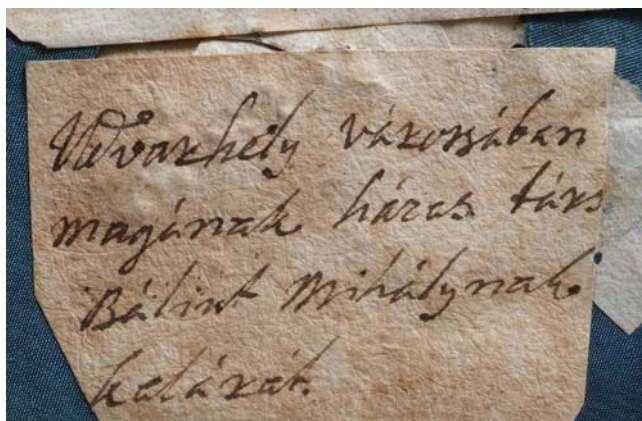 Udvarhely várossában
magának házas társ
Bálint Mihálynak
halázát.